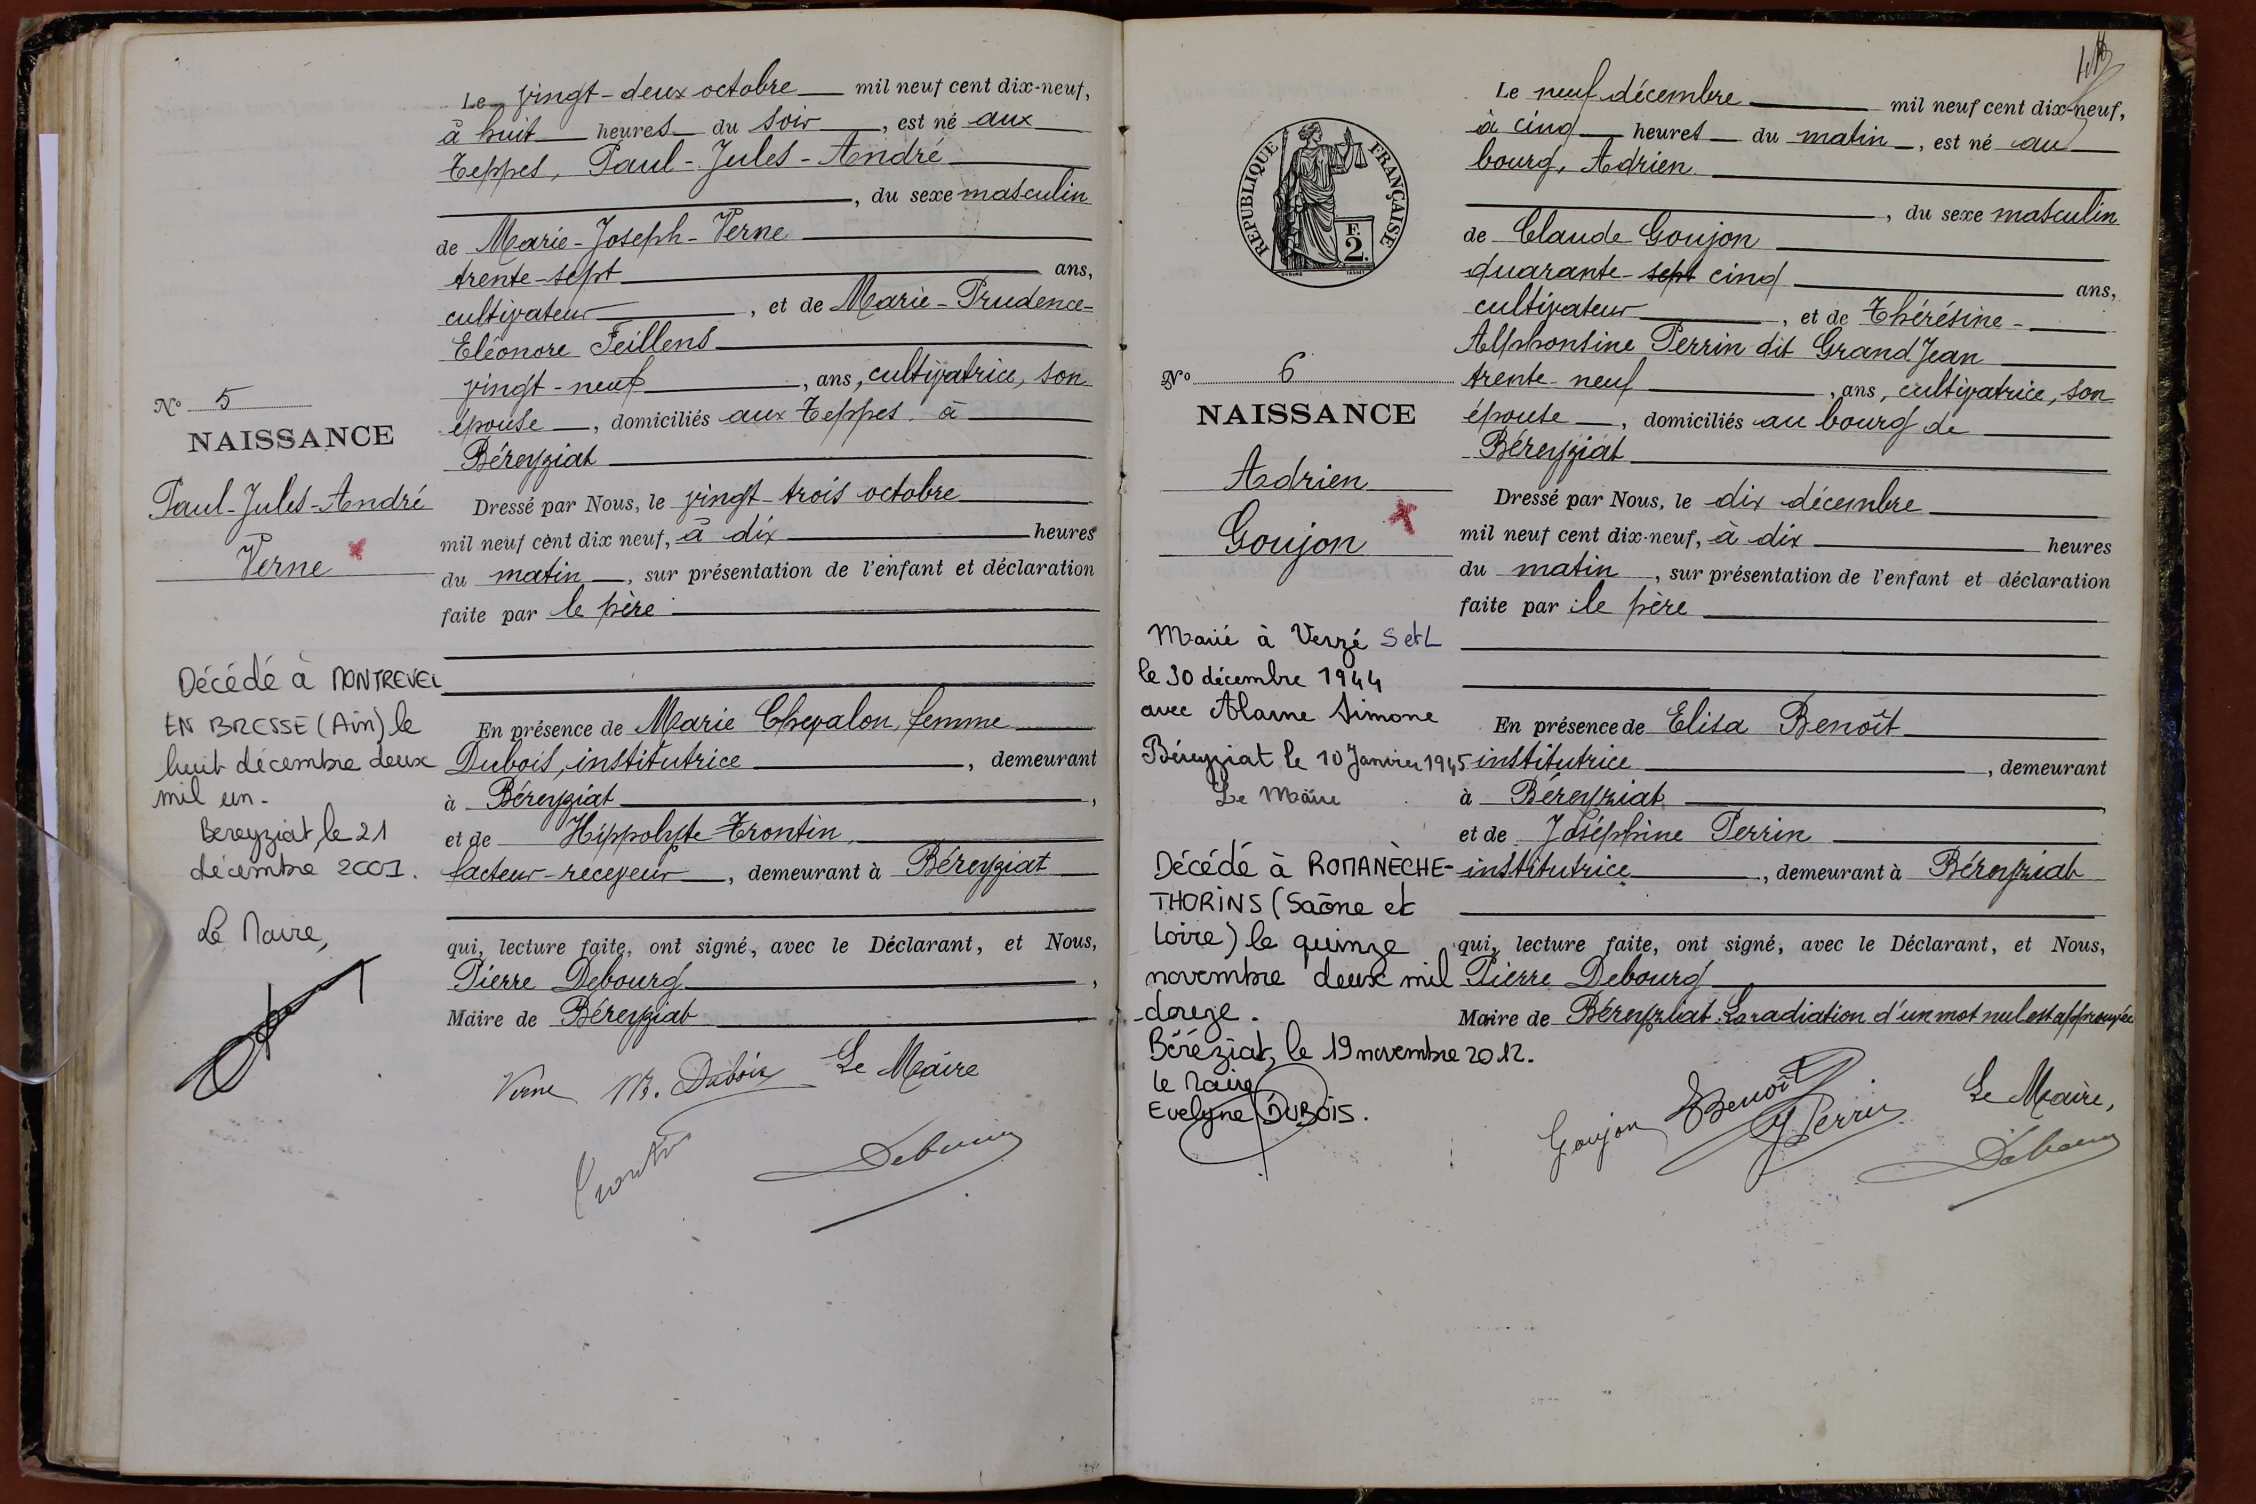 Le vingt-deux octobre mil neuf cent dix-neuf,
à huit heures du soir, est né aux
Teppes, Paul-Jules-André
, du sexe masculin
de Marie-Joseph-Verne
trente-sept ans,
cultivateur, et de Marie-Prudence-
Eléonore Feillens
vingt-neuf, ans, cultivatrice, son
épouse, domiciliés aux Teppes à
Béreyziat
N° 5
NAISSANCE
Paul-Jules-André
Verne
Dressé par Nous, le vingt-trois octobre
mil neuf cent dix neuf, à dix heures
du matin, sur présentation de l'enfant et déclaration
faite par le père
Décédé à MONTREVEL
EN BRESSE (Ain) le
huit décembre deux
mil un.
Bereyziat, le 21
décembre 2001.
Le Maire,
En présence de Marie Chevalon, femme
Dubois, institutrice, demeurant
à Béreyziat,
et de Hippolyte Trontin,
facteur-receveur, demeurant à Béreyziat
qui, lecture faite, ont signé, avec le Déclarant, et Nous,
Pierre Debourg,
Maire de Béreyziat
Verne M. Dubois Le Maire
Trontin Debourg
Le neuf décembre mil neuf cent dix-neuf,
à cinq heures du matin, est né au
bourg, Adrien
, du sexe masculin
de Claude Goujon
quarante-sept cinq ans,
cultivateur, et de Thérésine-
Alphonsine Perrin dit Grand Jean
trente-neuf, ans, cultivatrice, son
épouse, domiciliés au bourg de
Béreyziat
REPUBLIQUE FRANÇAISE
2 F.
N° 6
NAISSANCE
Adrien
Goujon
Dressé par Nous, le dix décembre
mil neuf cent dix-neuf, à dix heures
du matin, sur présentation de l'enfant et déclaration
faite par le père
Marié à Verzé S et L
le 30 décembre 1944
avec Simone
Béreyziat le 10 Janvier 1945
Le Maire
Décédé à ROMANÈCHE-
THORINS (Saône et
Loire) le quinze
novembre deux mil
douze.
Béréziat, le 19 novembre 2012.
le Maire
Evelyne DUBOIS.
En présence de Elisa Benoît
institutrice, demeurant
à Béreyziat,
et de Joséphine Perrin
institutrice, demeurant à Béreyziat
qui, lecture faite, ont signé, avec le Déclarant, et Nous,
Pierre Debourg
Maire de Béreyziat. La radiation d'un mot nul est approuvée
Goujon EBenoît J Perrin Le Maire,
Debourg